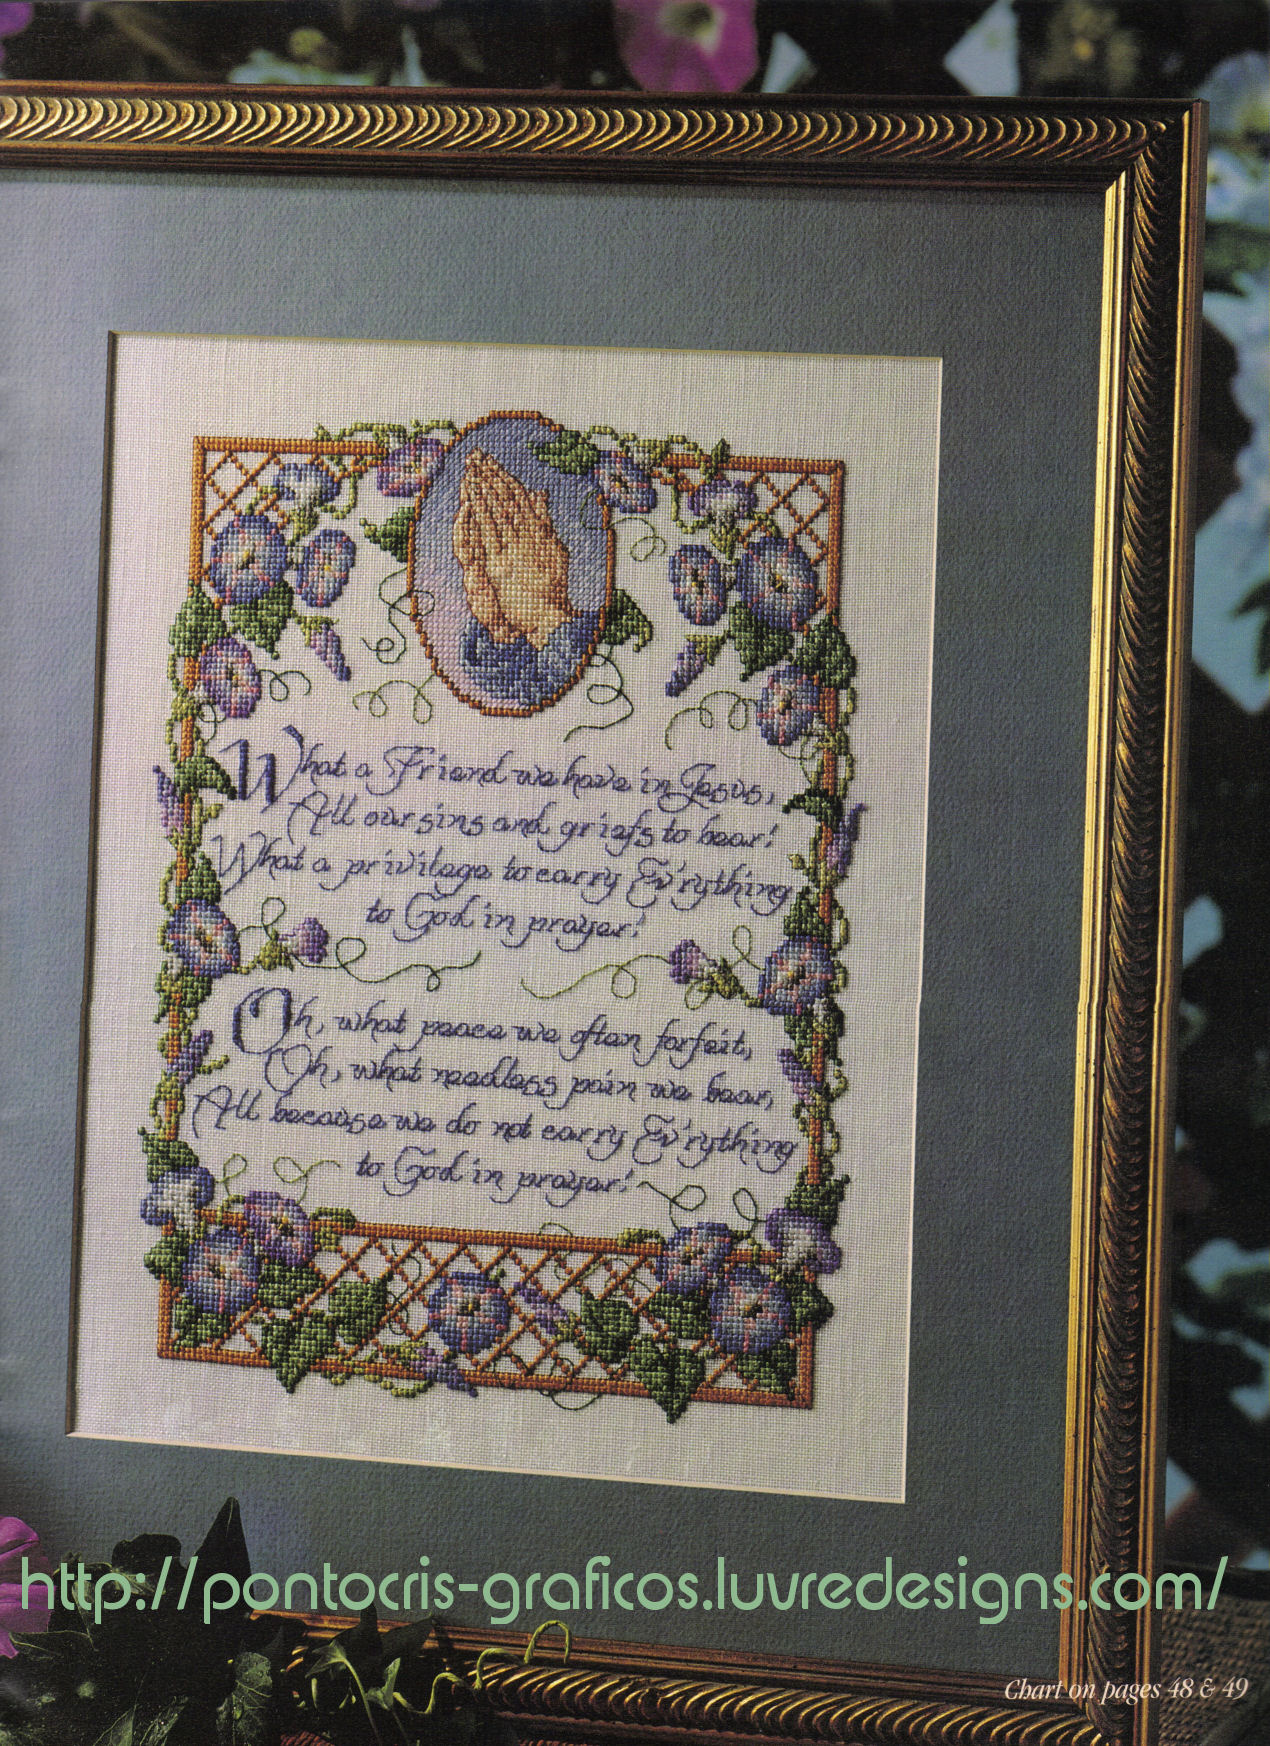 What a Friend we have in Jesus,
All our sins and griefs to bear!
What a privilege to carry Ev'rything
to God in prayer!
Oh, what peace we often forfeit,
Oh, what needless pain we bear,
All because we do not carry Ev'rything
to God in prayer!
http://pontocris-graficos.luvredesigns.com/
Chart on pages 48 & 49